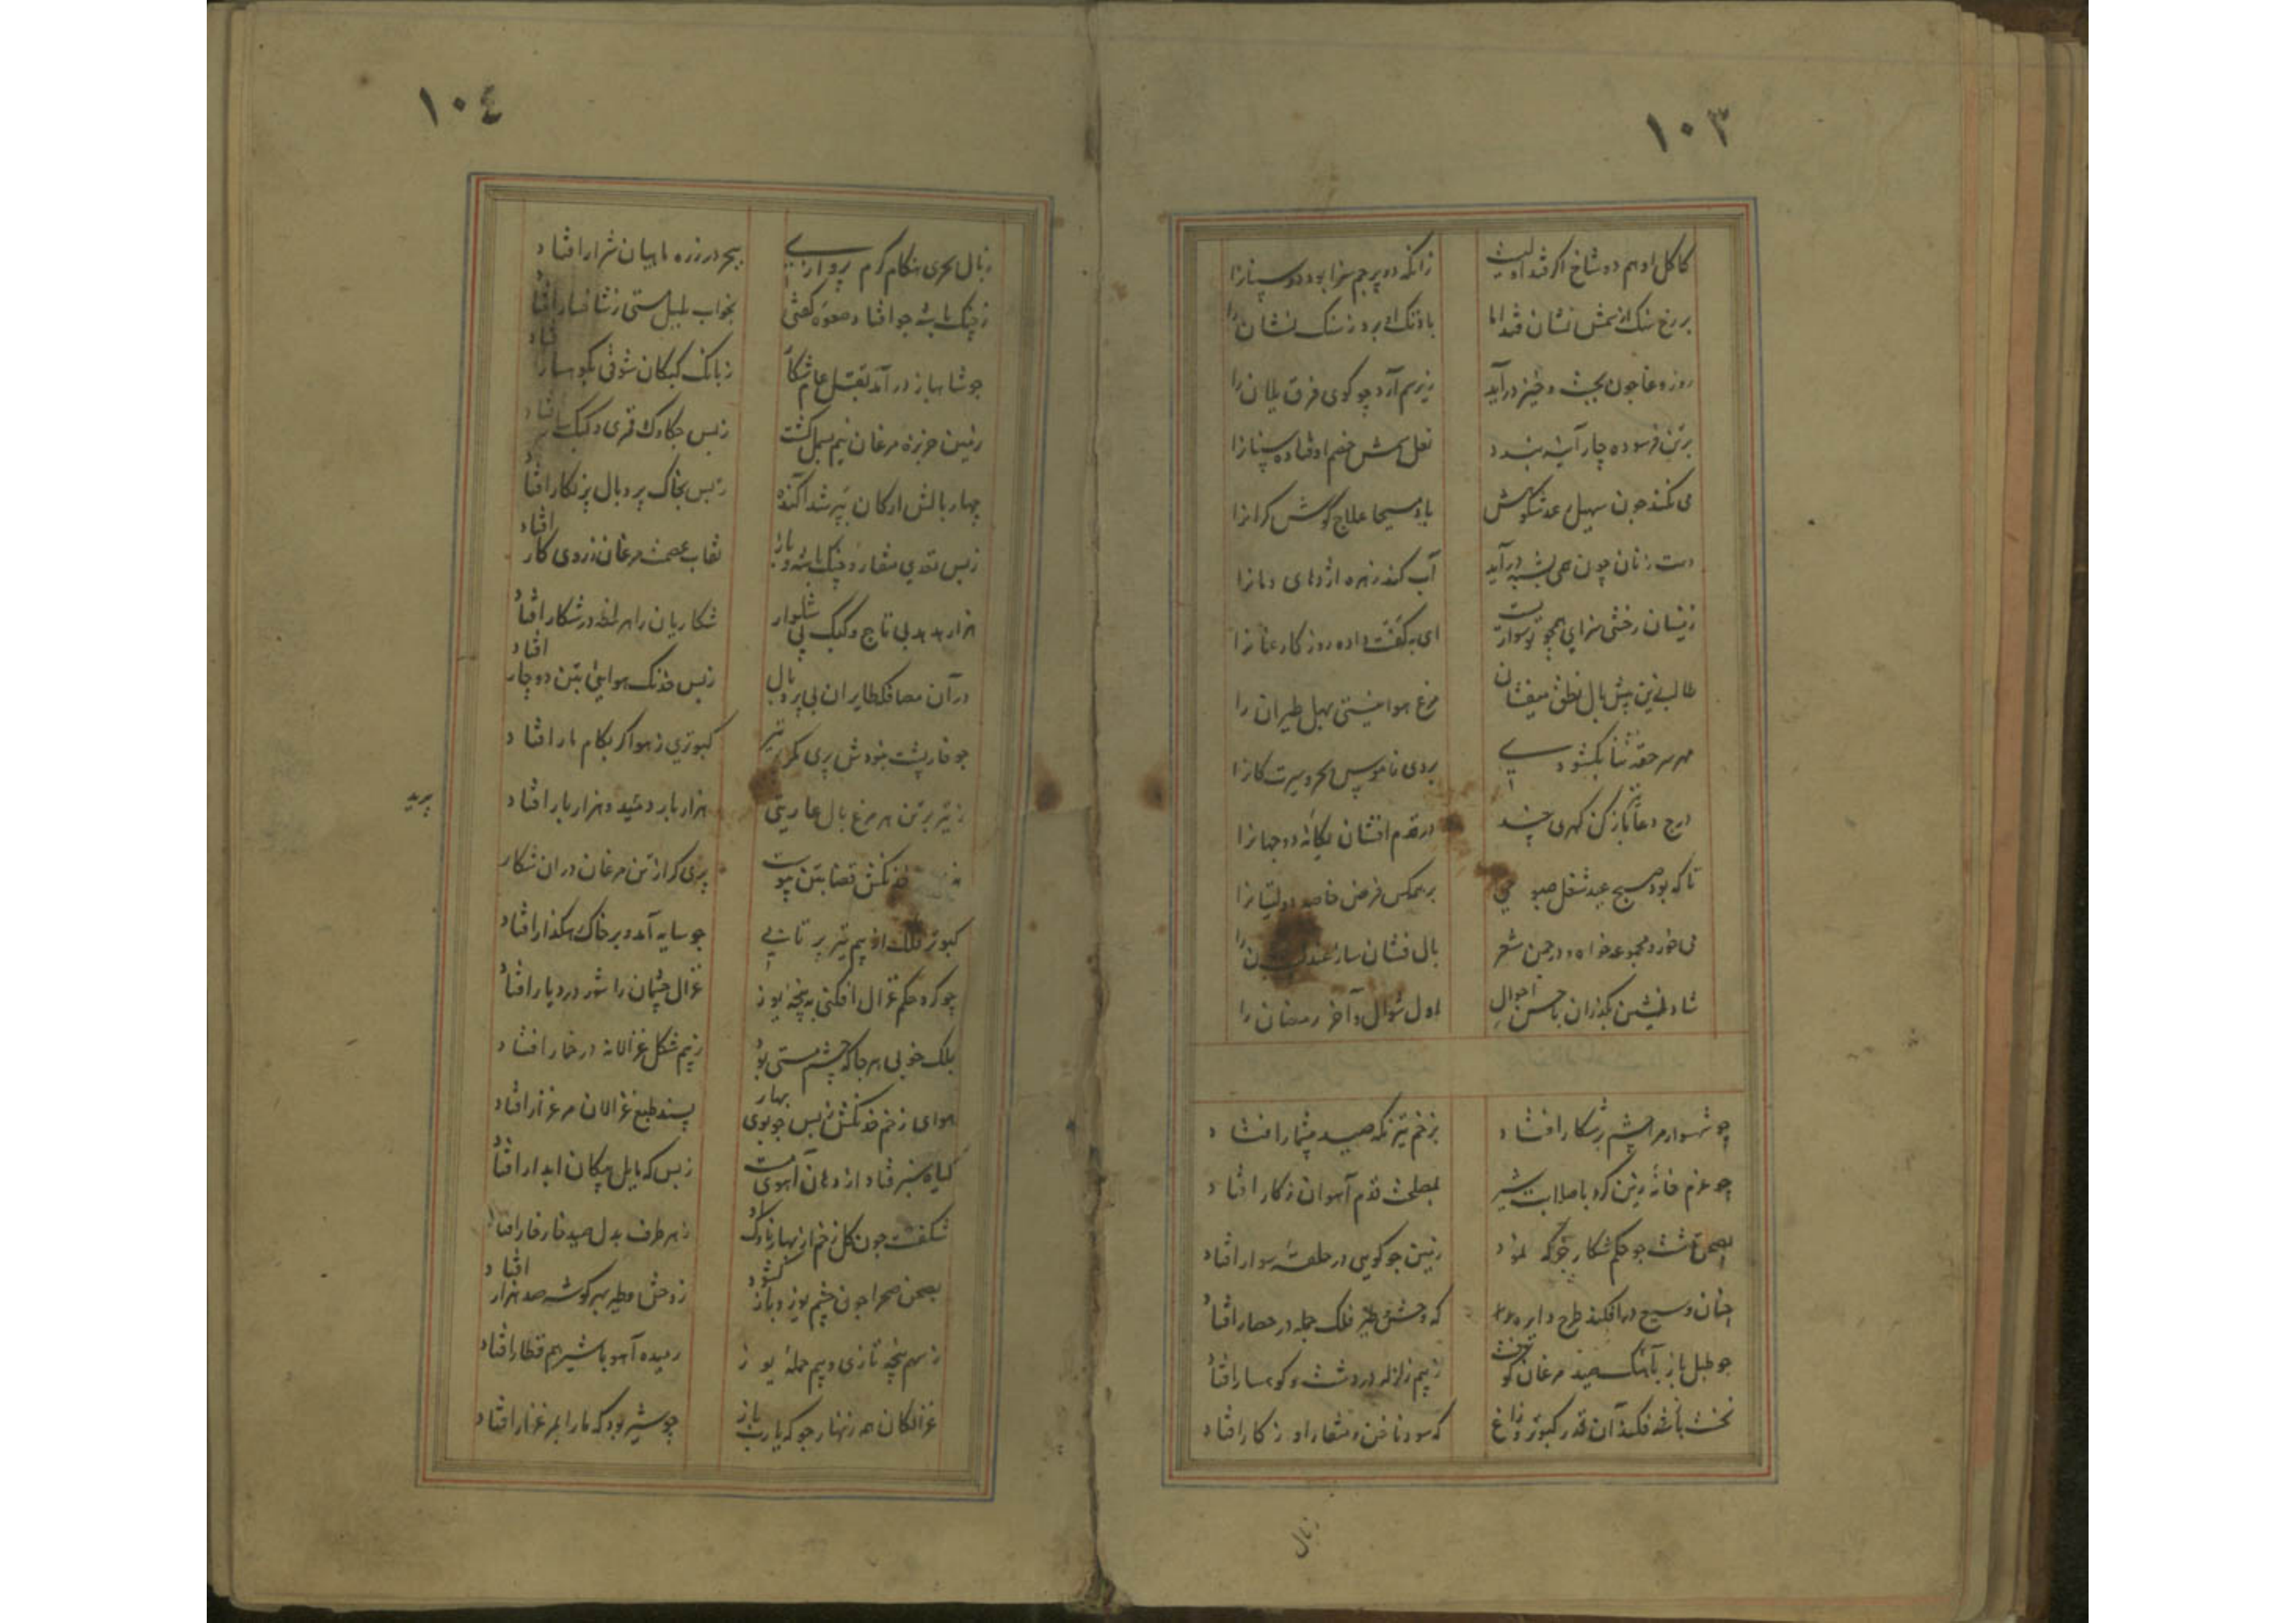 ١٠٣
کاکل او هم دو شاخ اگر فتد اولیست
زانکه دو پرچم سزا بود دو سنانرا
بر رخ سنک از سمش نشان فتد اما
باد تک او برد ز سنک نشان را
روز وغا چون بجست و خیز درآید
زیر سم آرد چو کوی فرق یلان را
بر تن فرسوده چار آینه بندد
نعل سمش خصم اوفتاده سنانرا
می کند چون سهیل
باد مسیحا علاج گوش کرانرا
دست زنان چون همی بشیهه درآید
آب کند زهره اژدهای دمانرا
زینسان رخشی سزای همچو تو سواریست
ای بکفت داده روزکار عنانرا
طالب ازین بیش بال نطق میفشان
مرغ هوا نیستی بهل طیران را
مهر سر حقه ثنا بکشودی
بردی ناموس بحر و سیرت کانرا
درج دعا باز کن کهری چند
در قدم افشان یکانه دو جهانرا
تا که بود صبح عید شغل صبوحی
بر همکس فرض خاصه دولتیانرا
می خور و مجموعه خواه و در چمن شعر
بال فشان ساز عندلیب را
شاد نشین بگذران باحسن احوال
اول شوال و آخر رمضان را
چو شهسوار مرا چشم بر شکار افتاد
بزخم تیر نکه صید بیشمار افتاد
چو عزم خانه زین کرد با صلابت شیر
بمصلحت قدم آهوان ز کار افتاد
بصحن دشت چو حکم شکار جرکه نمود
زمین چو کویی در حلقه سوار افتاد
چنان وسیع درافکند طرح دایره را
که وحش و طیر فلک جمله در حصار افتاد
چو طبل باز بآهنک صید مرغان کوفت
ز بیم زلزله در دشت و کوهسار افتاد
نخست باشه فکند آن قدر کبوتر و زاغ
که سود ناخن و منقار او ز کار افتاد
زبال
١٠٤
زبال بحری هنکام کرم پروازی
ببحر در زره ماهیان شرار افتاد
ز چنک باشه چو افتاد صعوه کفتی
بخواب بلبل مستی ز شاخسار افتاد
چو شاهباز درآمد بقتل عام شکار
ز بانک کبکان شوقی بکوهسار افتاد
زمین جزیره مرغان نیم بسمل کشت
ز بس چکاوک و قمری و کبک سار فتاد
چهار بالش ارکان بپر شد آکنده
ز بس بخاک پر و بال پر نکار افتاد
ز بس تعدی منقار و چنک باشه و باز
نقاب عصمت مرغان ز روی کار افتاد
هزار هدهد بی تاج و کبک بی شلوار
شکاریان را هر لحظه در شکار افتاد
در آن مصاف که طایران بی پر و بال
ز بس خدنک هوایی بتن دوچار افتاد
چو خارپشت بخودش پری مکر تیر
کبوتری ز هوا کر بکام مار افتاد
ز تیر بر تن هر مرغ بال عاریتی
هزار بار دمید و هزار بار افتاد
خدنکش قضا بتن پیوست
پری کر از تن مرغان در آن شکار
پرید
کبوتر فلک از بیم تیر پر تابی
چو سایه آمد و بر خاک رهکذار افتاد
چو کرد حکم غزال افکنی به پنجه یوز
غزال چشمان را شور در دیار افتاد
بلک خوبی هر جا که چشم مستی بود
ز بیم شکل غزالانه در خمار افتاد
هوای زخم خدنکش ز بس چو بوی بهار
پسند طبع غزالان مرغزار افتاد
کیاه سبز فتاد از دهان آهوی مست
ز بس که مایل پیکان ابدار افتاد
شکفت چون کل زخم از بهار ناوک او
ز هر طرف بدل صید خار خار افتاد
بصحن صحرا چون چشم یوز و باز کشود
ز وحش و طیر بهر کوشه صد هزار افتاد
ز سهم پنجه تازی و بیم حمله یوز
رمیده آهو با شیر هم قطار افتاد
غزالکان همه زنهار جو که یارب باز
چو شیر بود که ما را بمرغزار افتاد